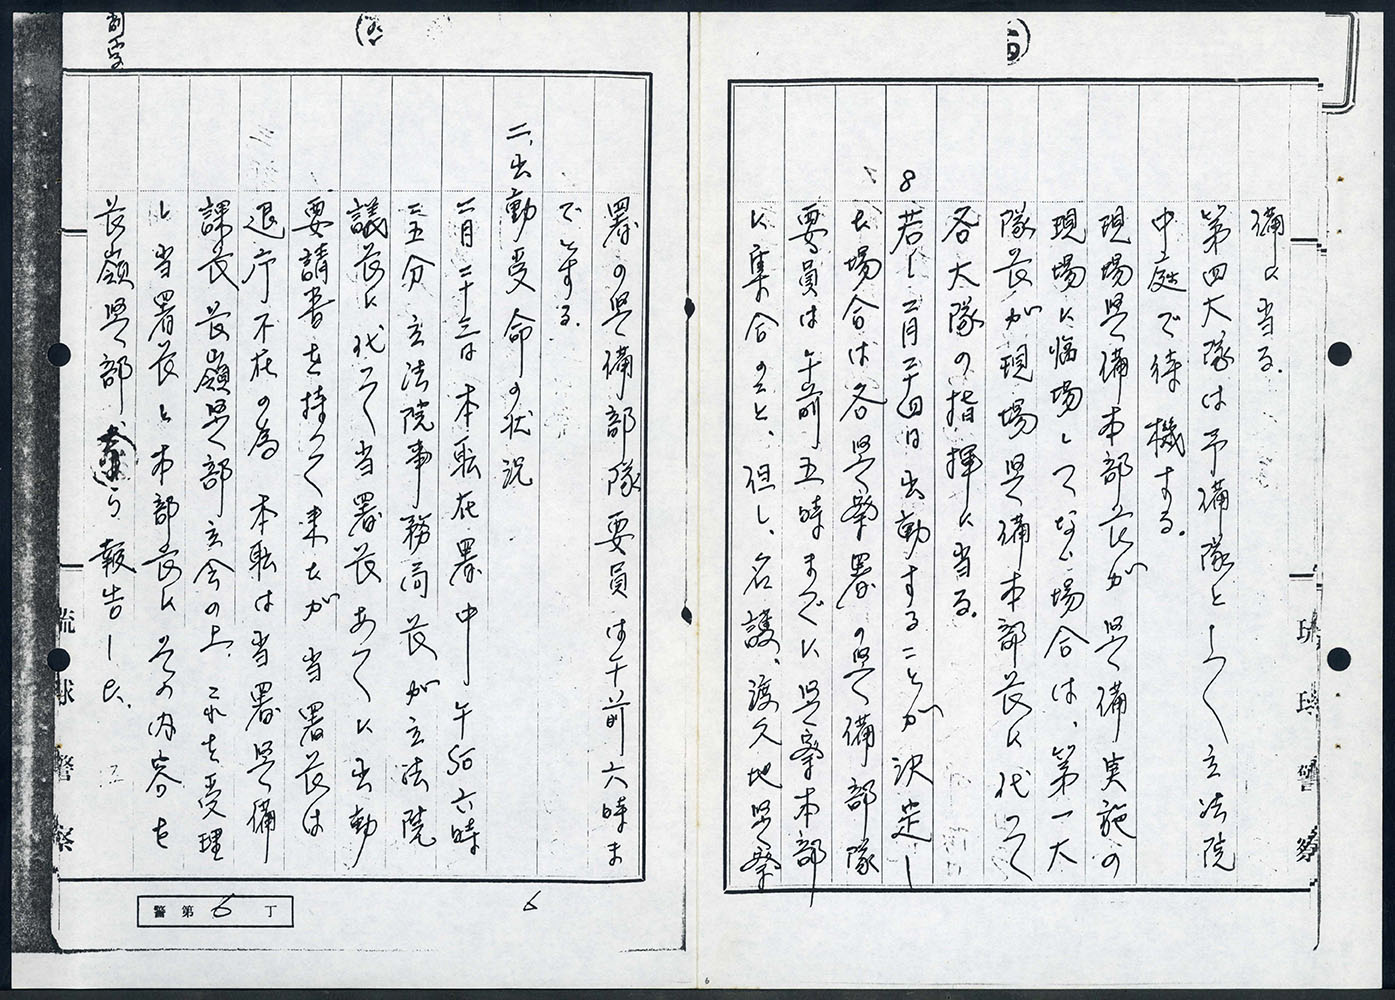 備に当る。
第四大隊は予備隊として立法院
中庭で待機する。
現場警備本部長が警備実施の
現場に臨場してない場合は、第一大
隊長が現場警備本部長に代って
各大隊の指揮に当る。
8 若し二月二十四日出動することが決定し
た場合は各警察署の警備部隊
要員は午前五時までに警察本部
に集合のこと、但し、名護、渡久地警察
琉球警察
署の警備部隊要員は午前六時ま
でとする。
二、出動受命の状況
二月二十三日本職在署中午后六時
三五分立法院事務局長が立法院
議長に代って当署長あてに出動
要請書を持って来たが当署長は
退庁不在の為本職は当署警備
課長長嶺警部立会の上、これを受理
し当署長と本部長にその内容を
長嶺警部から報告した。
琉球警察
警第6丁
6
6